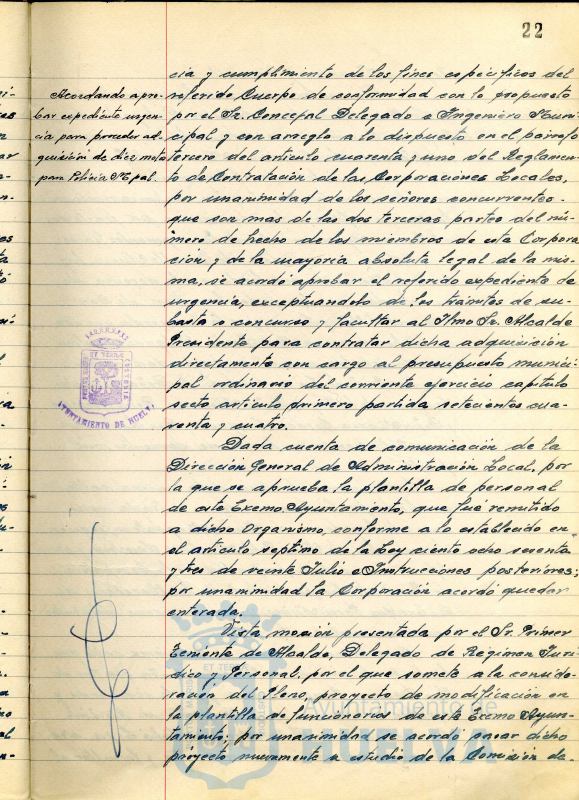 22
cia y cumplimiento de los fines especificos del
referido Cuerpo de conformidad con lo propuesto
por el Sr. Concejal Delegado e Ingeniero Muni-
cipal y con arreglo a lo dispuesto en el parrafo
tercero del articulo cuarenta y uno del Reglamen-
to de Contratación de las Corporaciones Locales,
por unanimidad de los señores concurrentes-
que son mas de las dos terceras partes del nú-
mero de hecho de los miembros de esta Corpora-
cion y de la mayoría absoluta legal de la mis-
ma, se acordó aprobar el referido expediente de
urgencia, exceptuandolo de los trámites de su-
basta o concurso y facultar al Ilmo Sr. Alcalde
Presidente para contratar dicha adquisición
directamente con cargo al presupuesto munici-
pal ordinario del corriente ejercicio capitulo
sexto articulo primero partida setecientos cua-
renta y cuatro.
Dada cuenta de comunicación de la
Dirección General de Administración Local, por
la que se aprueba la plantilla de personal
de este Excmo. Ayuntamiento, que fué remitido
a dicho Organismo, conforme a lo establecido en
el articulo septimo de la Ley ciento ocho sesenta
y tres de veinte Julio e Instrucciones posteriores;
por unanimidad la Corporación acordó quedar
enterada.
Vista moción presentada por el Sr. Primer
Teniente de Alcalde, Delegado de Régimen Juri-
dico y Personal, por el que somete a la conside-
ración del Pleno, proyecto de modificación en
la plantilla de funcionarios de este Excmo Ayun-
tamiento; por unanimidad se acordó pasar dicho
proyecto nuevamente a estudio de la Comisión de-
Acordando apro-
bar expediente urgen-
cia para proceder ad-
quisición de diez motos
para Policia Mpal.
AYUNTAMIENTO DE HUELVA
Ayuntamiento de
HUELVA